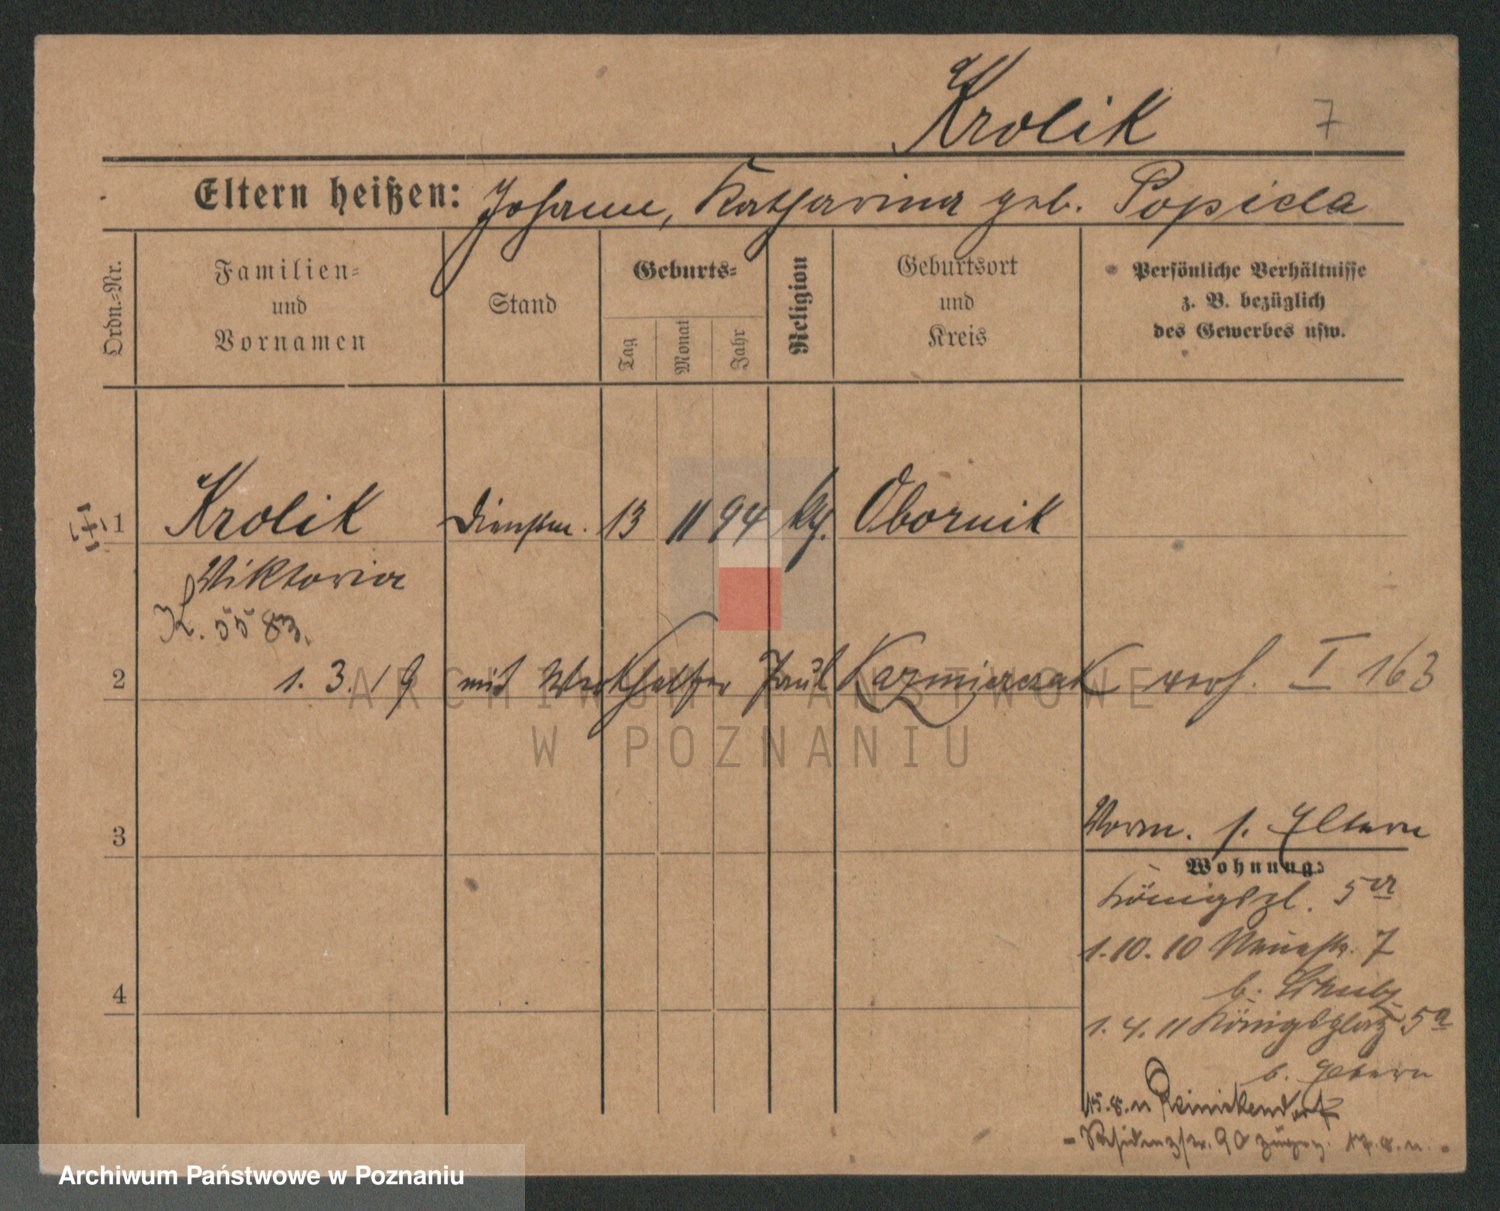 Krolik 7
Eltern heißen: Johann, Katharina geb. Popiela
Ordn.-Nr.
Familien-
und
Vornamen
Stand
Geburts-
Tag
Monat
Jahr
Religion
Geburtsort
und
Kreis
Persönliche Verhältnisse
z. B. bezüglich
des Gewerbes usw.
1 Krolik Dienstm. 13 11 94 kth. Obornik
Viktoria
K. 5583.
2 1. 3. 19 mit Paul Kazmierczak verh. I 163
3
Vorm. s. Eltern
Wohnung:
Königspl. 5a
1.10.10 7
b.
4
1.4.11 Königsplatz 5a
b. Eltern
15.8.11 Reinickendorf
Residenzstr. 90
ARCHIWUM PAŃSTWOWE
W POZNANIU
Archiwum Państwowe w Poznaniu